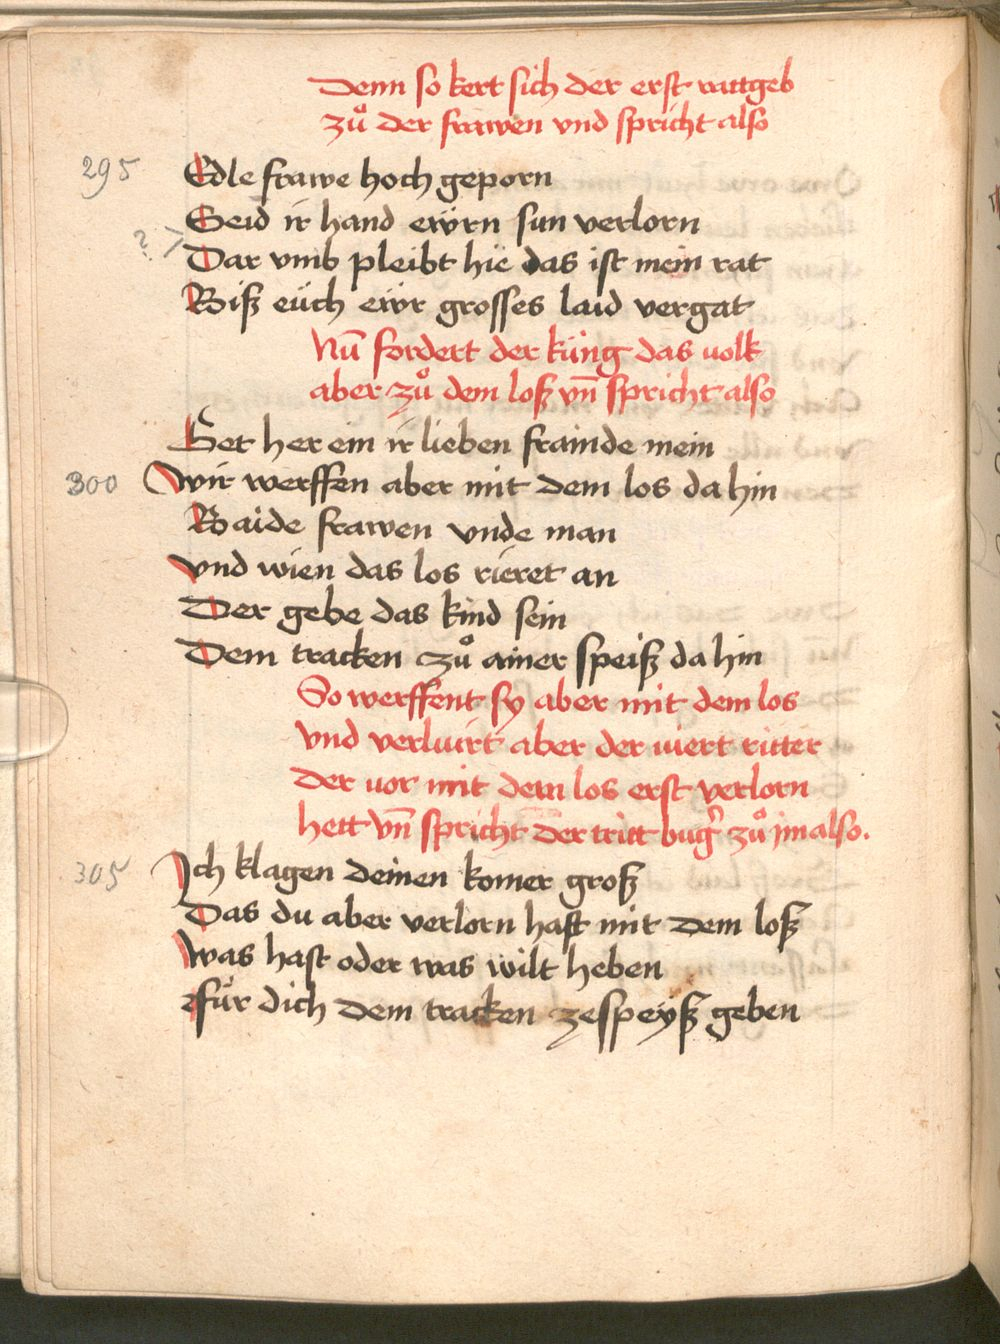 Denn so kert sich der erst rattgeb
zů der frawen vnd spricht also
295 Edle frawe hoch geporn
Seid ir hand ewrn sun verlorn
? > Dar vmb pleibt hie das ist mein rat
Biß eüch ewr grosses laid vergat
Nu̅ fordert der küng das volk
aber zů dem loß vn̅ spricht also
Get her ein ir lieben frainde mein
300 Wir werffen aber mit dem los da hin
Baide frawen vnde man
Vnd wien das los rieret an
Der gebe das kind sein
Dem tracken zů ainer speiß da hin
So werffent sy aber mit dem los
Vnd verluirt aber der viert ritter
Der vor mit dem los erst verlorn
hett vn̅ spricht der tritt bugr̕ zů jm also.
305 Ich klagen deinen komer groß
Das du aber verlorn hast mit dem loß
Was hast oder was wilt heben
Für dich dem tracken zespeyß geben